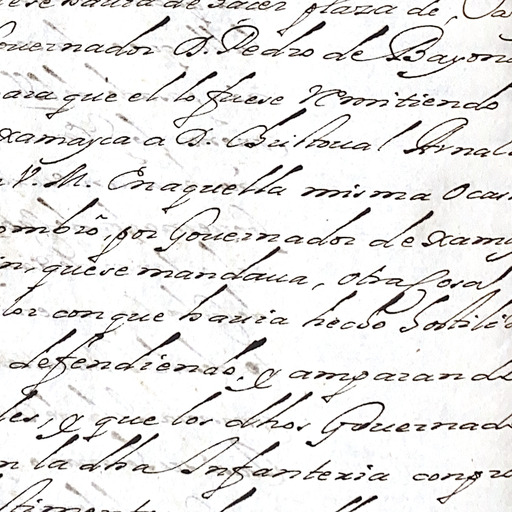 hauia de hacer plaza de
Gouernador D. Pedro de Bayona
para que el lo fuese Remitiendo
xamayca a D. Christoual Arnal
V. M. En aquella misma Ocas
ombrò, por Gouernador de xamay
in, que se mandaua, otra Cosa
los con que hauia hecho hostili
defendiendo, y amparando
les, y que los dhos Gouernad
n la dha Infanteria congr